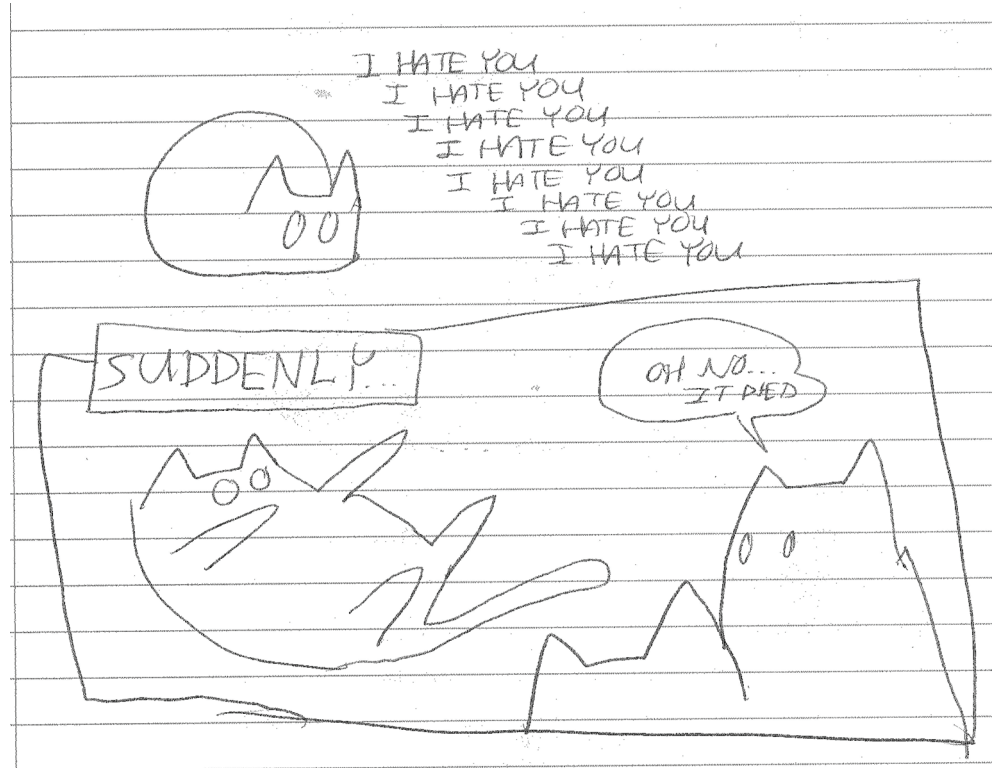 I HATE YOU
I HATE YOU
I HATE YOU
I HATE YOU
I HATE YOU
I HATE YOU
I HATE YOU
I HATE YOU
SUDDENLY...
OH NO...
IT DIED